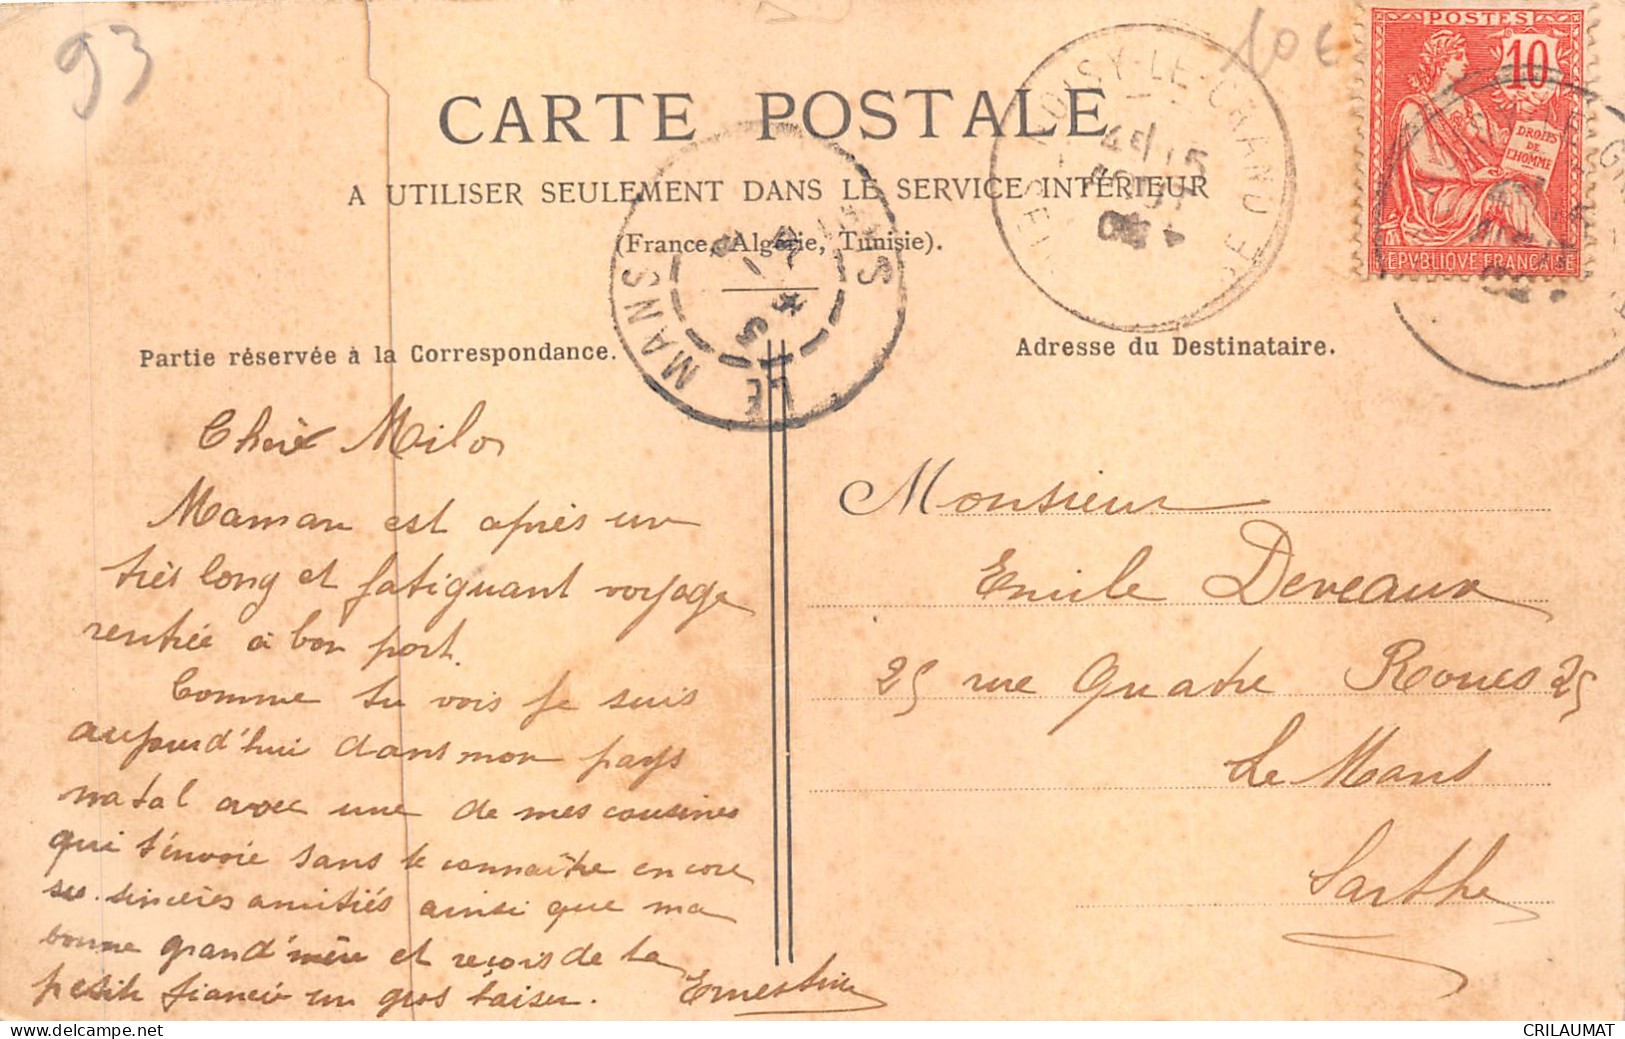 93
10 €
POSTES
10
DROITS
DE
L'HOMME
REPVBLIQVE FRANÇAISE
CARTE POSTALE
A UTILISER SEULEMENT DANS LE SERVICE INTÉRIEUR
(France, Algérie, Tunisie).
NOISY-LE-GRAND
LE MANS
Partie réservée à la Correspondance.
Adresse du Destinataire.
Cher Milo
Maman est après un
très long et fatiguant voyage
rentrée à bon port.
Comme tu vois je suis
aujourd'hui dans mon pays
natal avec une de mes cousines
qui t'envoie sans te connaître encore
ses sincères amitiés ainsi que ma
bonne grand'mère et reçois de ta
petite fiancée un gros baiser. Ernestine
Monsieur
Emile Deveaux
25 rue Quatre Roues 25
Le Mans
Sarthe
CRILAUMAT